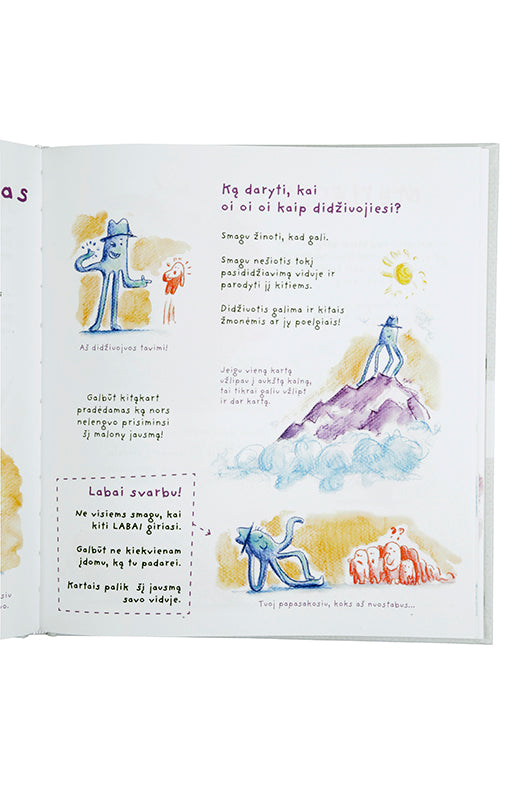 as
siu
vo.
Ką daryti, kai
oi oi oi kaip didžiuojiesi?
Smagu žinoti, kad gali.
Smagu nešiotis tokį
pasididžiavimą viduje ir
parodyti jį kitiems.
Didžiuotis galima ir kitais
žmonėmis ar jų poelgiais!
Aš didžiuojuos tavimi!
Jeigu vieną kartą
užlipau į aukštą kalną,
tai tikrai galiu užlipt
ir dar kartą.
Galbūt kitąkart
pradėdamas ką nors
nelengvo prisiminsi
šį malonų jausmą!
Labai svarbu!
Ne visiems smagu, kai
kiti LABAI giriasi.
Galbūt ne kiekvienam
įdomu, ką tu padarei.
Kartais palik šį jausmą
savo viduje.
??
Tuoj papasakosiu, koks aš nuostabus...